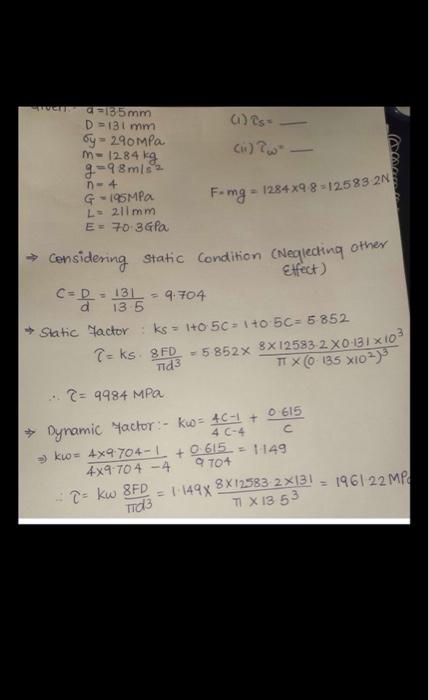 Given:- d=135mm
D=131 mm
σy=290MPa
m=1284 kg
g=9.8m/s²
n=4
G=195MPa
L=211mm
E=70.3GPa
(i) τs= —
(ii) τw= —
F=mg=1284×9.8=12583.2N
⇒ Considering static Condition (Neglecting other Effect)
C=D/d=131/13.5=9.704
→ Static factor: ks=1+0.5C=1+0.5C=5.852
τ=ks.8FD/πd3=5.852×8×12583.2×0.131×10³/π×(0.135×10²)³
∴ τ=9984 MPa
⇒ Dynamic factor:- kw=4C-1/4C-4+0.615/C
⇒ kw=4×9.704-1/4×9.704-4+0.615/9.704=1.149
∴ τ=kw 8FD/πd3=1.149×8×12583.2×131/π×13.5³=1961.22MPa